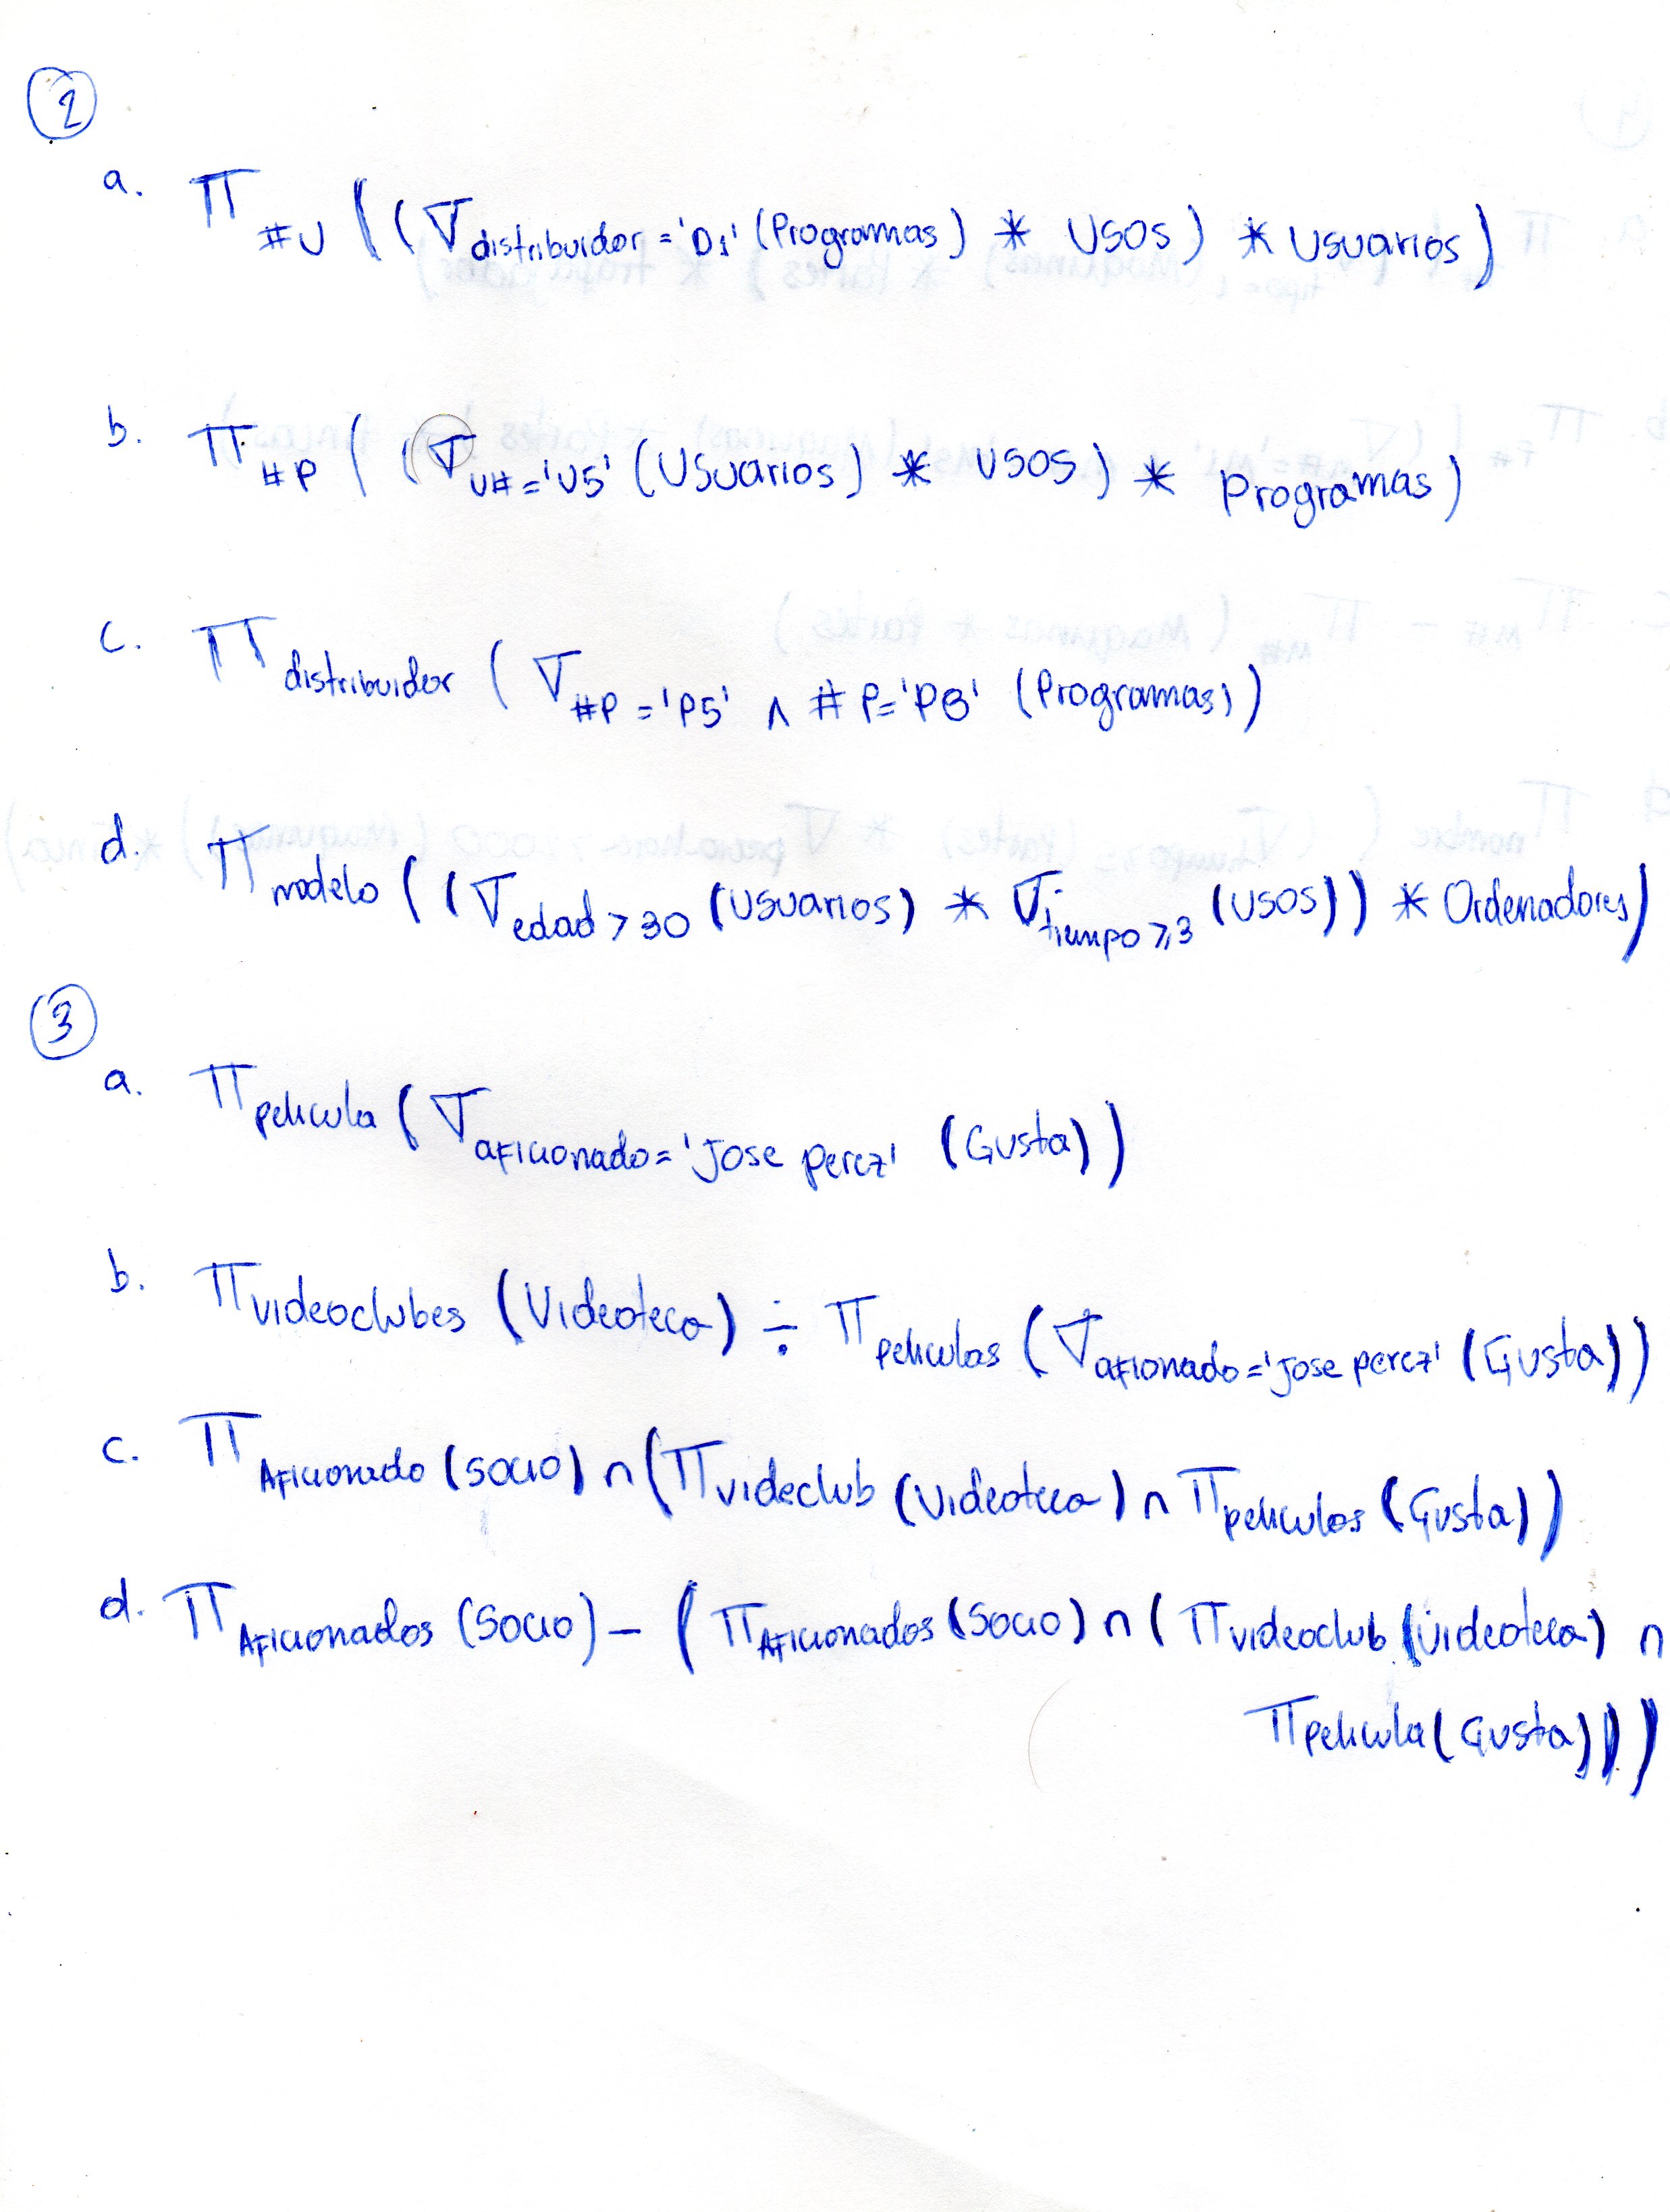 2
a. π #U ((σ distribuidor = 'D1' (Programas) * USOS) * Usuarios)
b. π #P ((σ U# = 'U5' (Usuarios) * USOS) * Programas)
c. π distribuidor (σ #P = 'P5' ∧ #P = 'P8' (Programas))
d. π modelo ((σ edad > 30 (Usuarios) * σ tiempo ≥ 3 (USOS)) * Ordenadores)
3
a. π pelicula (σ aficionado = 'Jose perez' (Gusta))
b. π videoclubes (Videoteca) ÷ π peliculas (σ aficionado = 'jose perez' (Gusta))
c. π Aficionado (socio) ∩ (π videclub (Videoteca) ∩ π peliculas (Gusta))
d. π Aficionados (Socio) - (π Aficionados (Socio) ∩ (π videoclub (Videoteca) ∩
π pelicula (Gusta)))